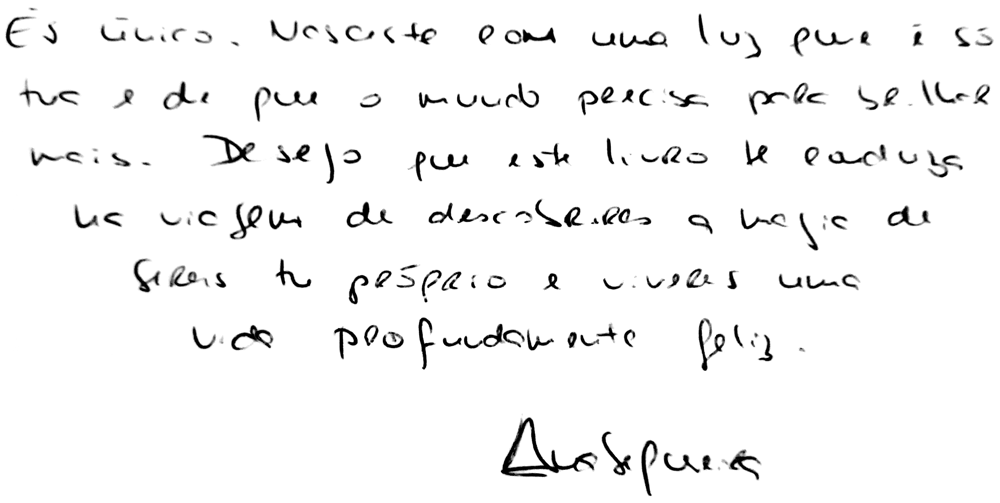 És único. Nasceste com uma luz que é só
tua e de que o mundo precisa para brilhar
mais. Desejo que este livro te conduza
na viagem de descobrires a magia de
seres tu próprio e viveres uma
vida profundamente feliz.